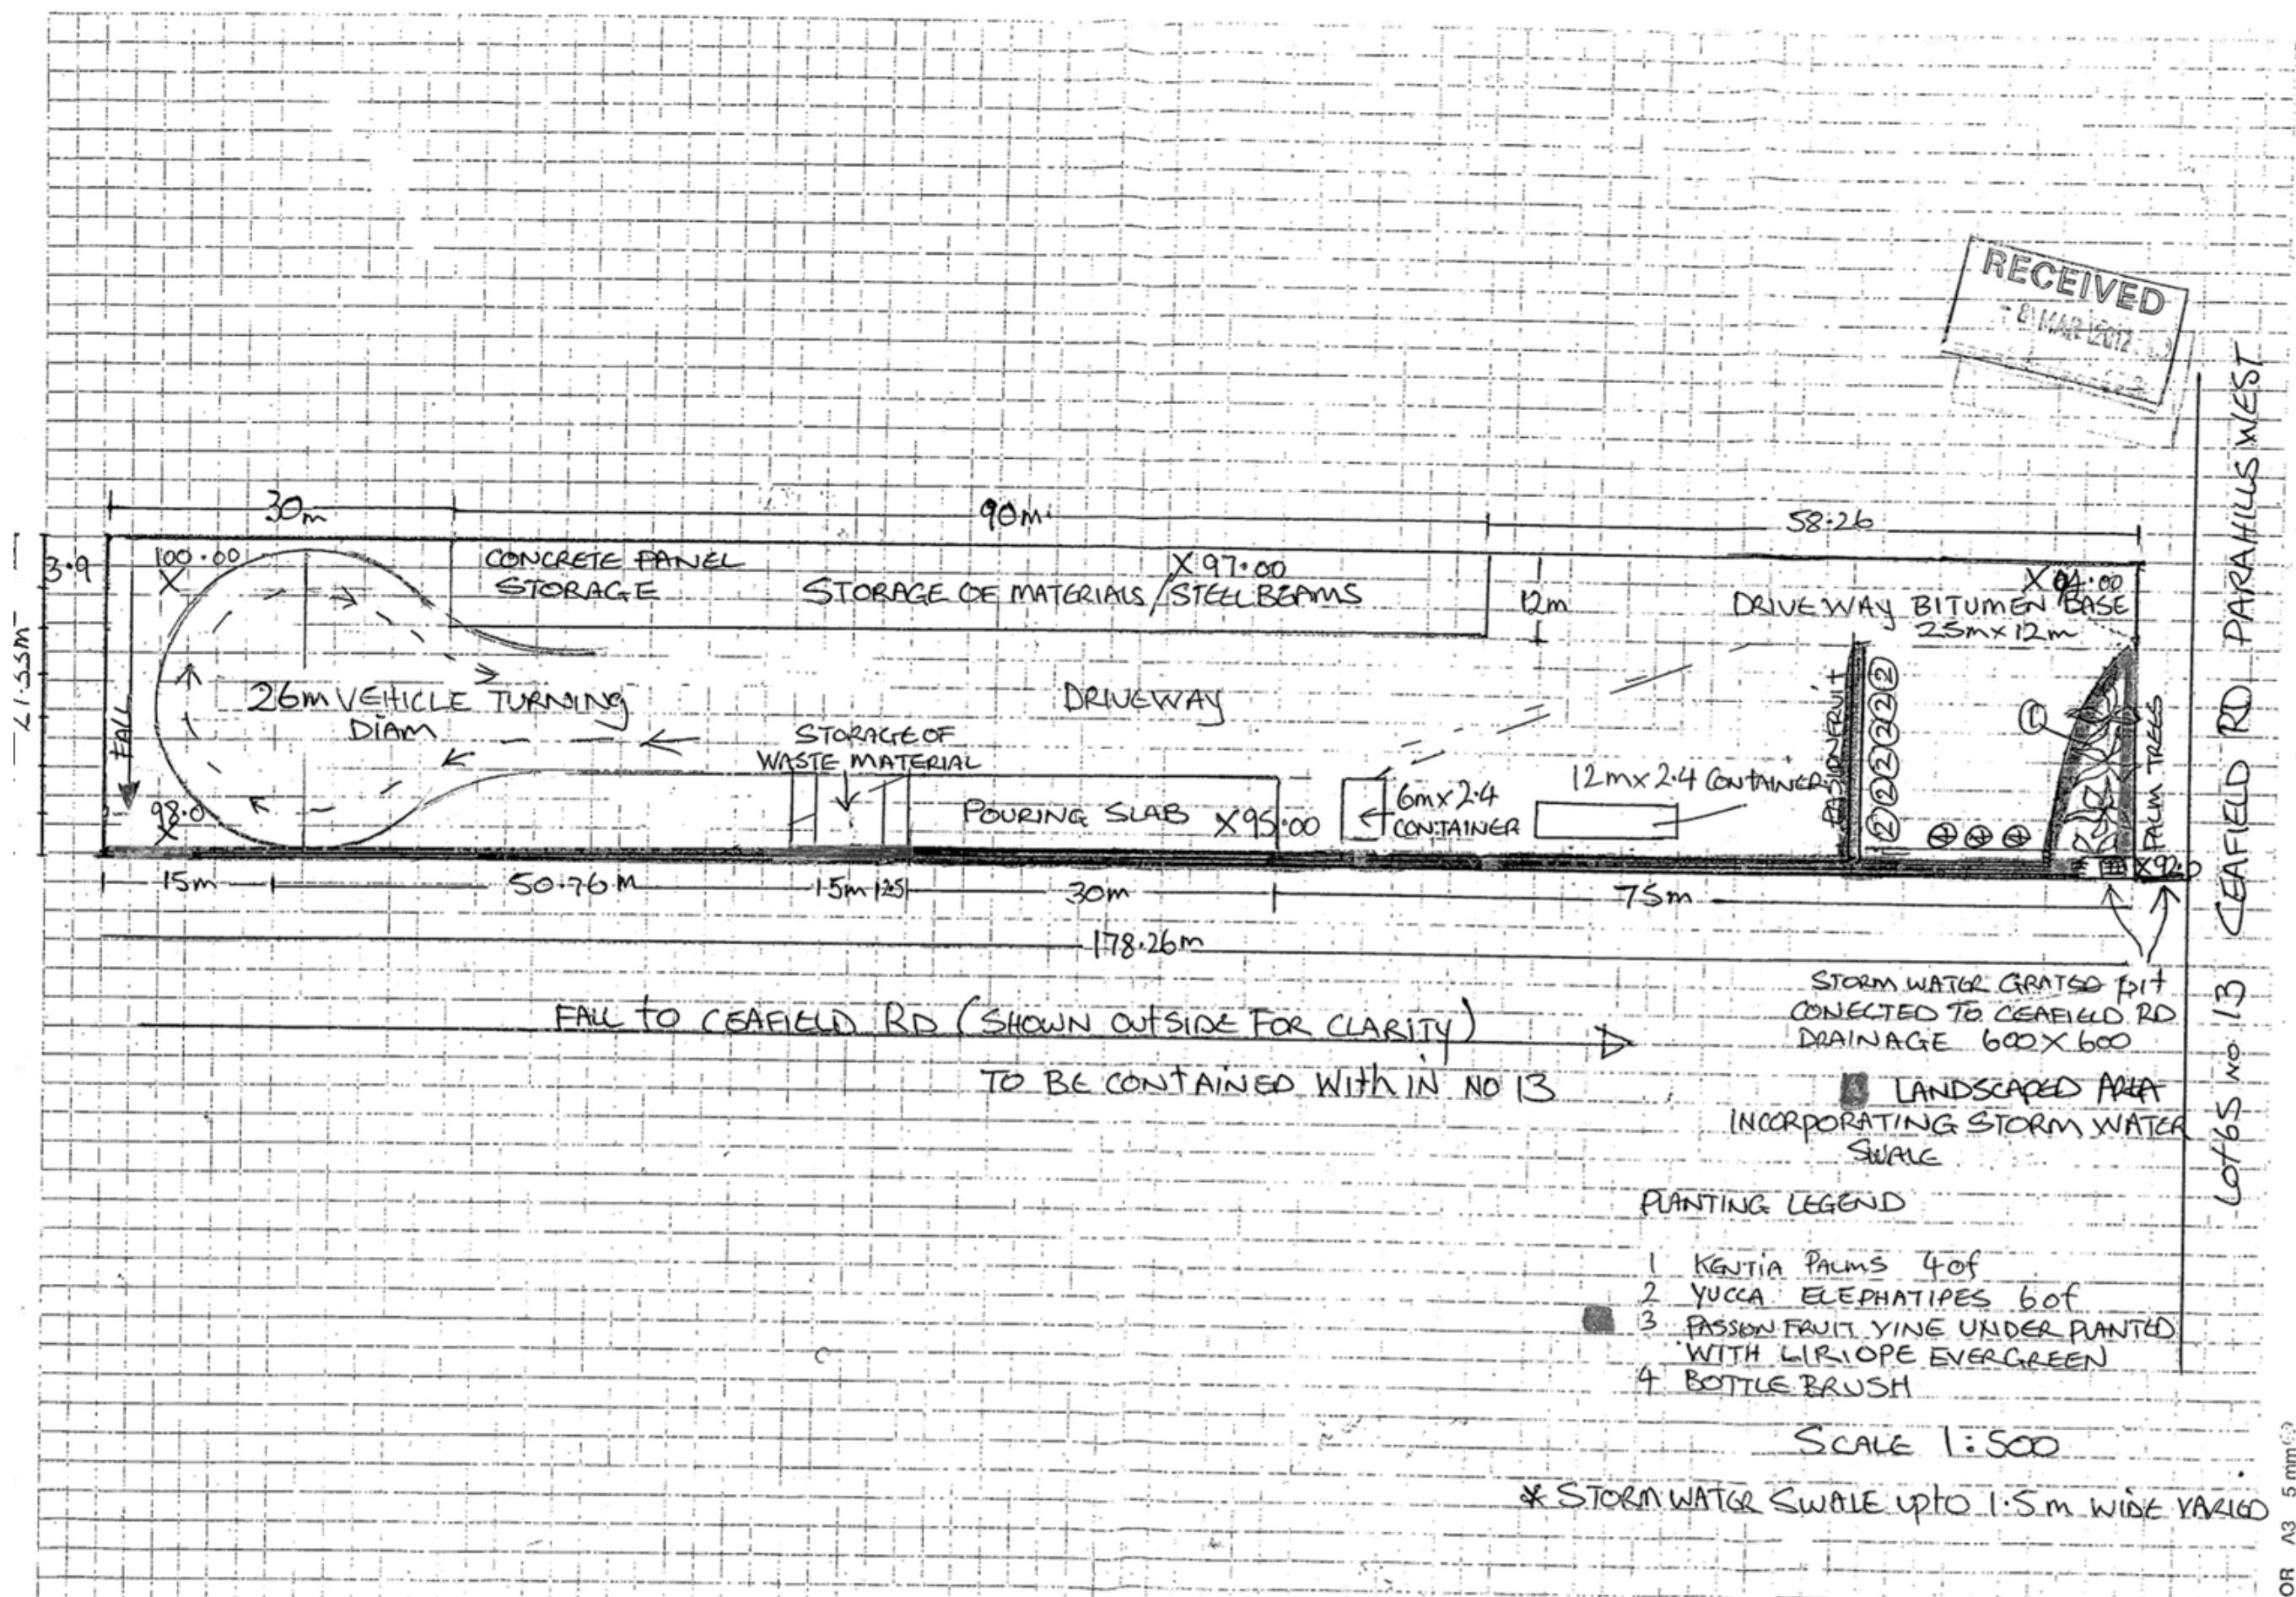 RECEIVED
- 8 MAR 2012
30m
90m
58.26
3.9
100.00
X
CONCRETE PANEL
STORAGE
STORAGE OF MATERIALS / STEEL BEAMS
X 97.00
12m
X 94.00
DRIVEWAY BITUMEN BASE
25m x 12m
FALL
26m VEHICLE TURNING
DIAM
DRIVEWAY
STORAGE OF
WASTE MATERIAL
POURING SLAB
X95.00
6m x 2.4
CONTAINER
12m x 2.4 CONTAINER
PASSIONFRUIT
2 2 2 2 2 2
1
PALM TREES
98.0
X
4 4 4
X92.0
15m
50.76 M
15m
30m
75m
178.26m
FALL TO CEAFIELD RD (SHOWN OUTSIDE FOR CLARITY)
TO BE CONTAINED WITHIN NO 13
STORM WATER GRATED pit
CONECTED TO CEAFIELD RD
DRAINAGE 600 X 600
LANDSCAPED AREA
INCORPORATING STORM WATER
SWALE
PLANTING LEGEND
1 KENTIA PALMS 4 of
2 YUCCA ELEPHATIPES 6 of
3 PASSON FRUIT VINE UNDER PLANTED
WITH LIRIOPE EVERGREEN
4 BOTTLE BRUSH
SCALE 1:500
* STORM WATER SWALE upto 1.5m WIDE VARIED
LOT 65 NO 13 CEAFIELD RD PARAHILLS WEST
OR A3 5 mm